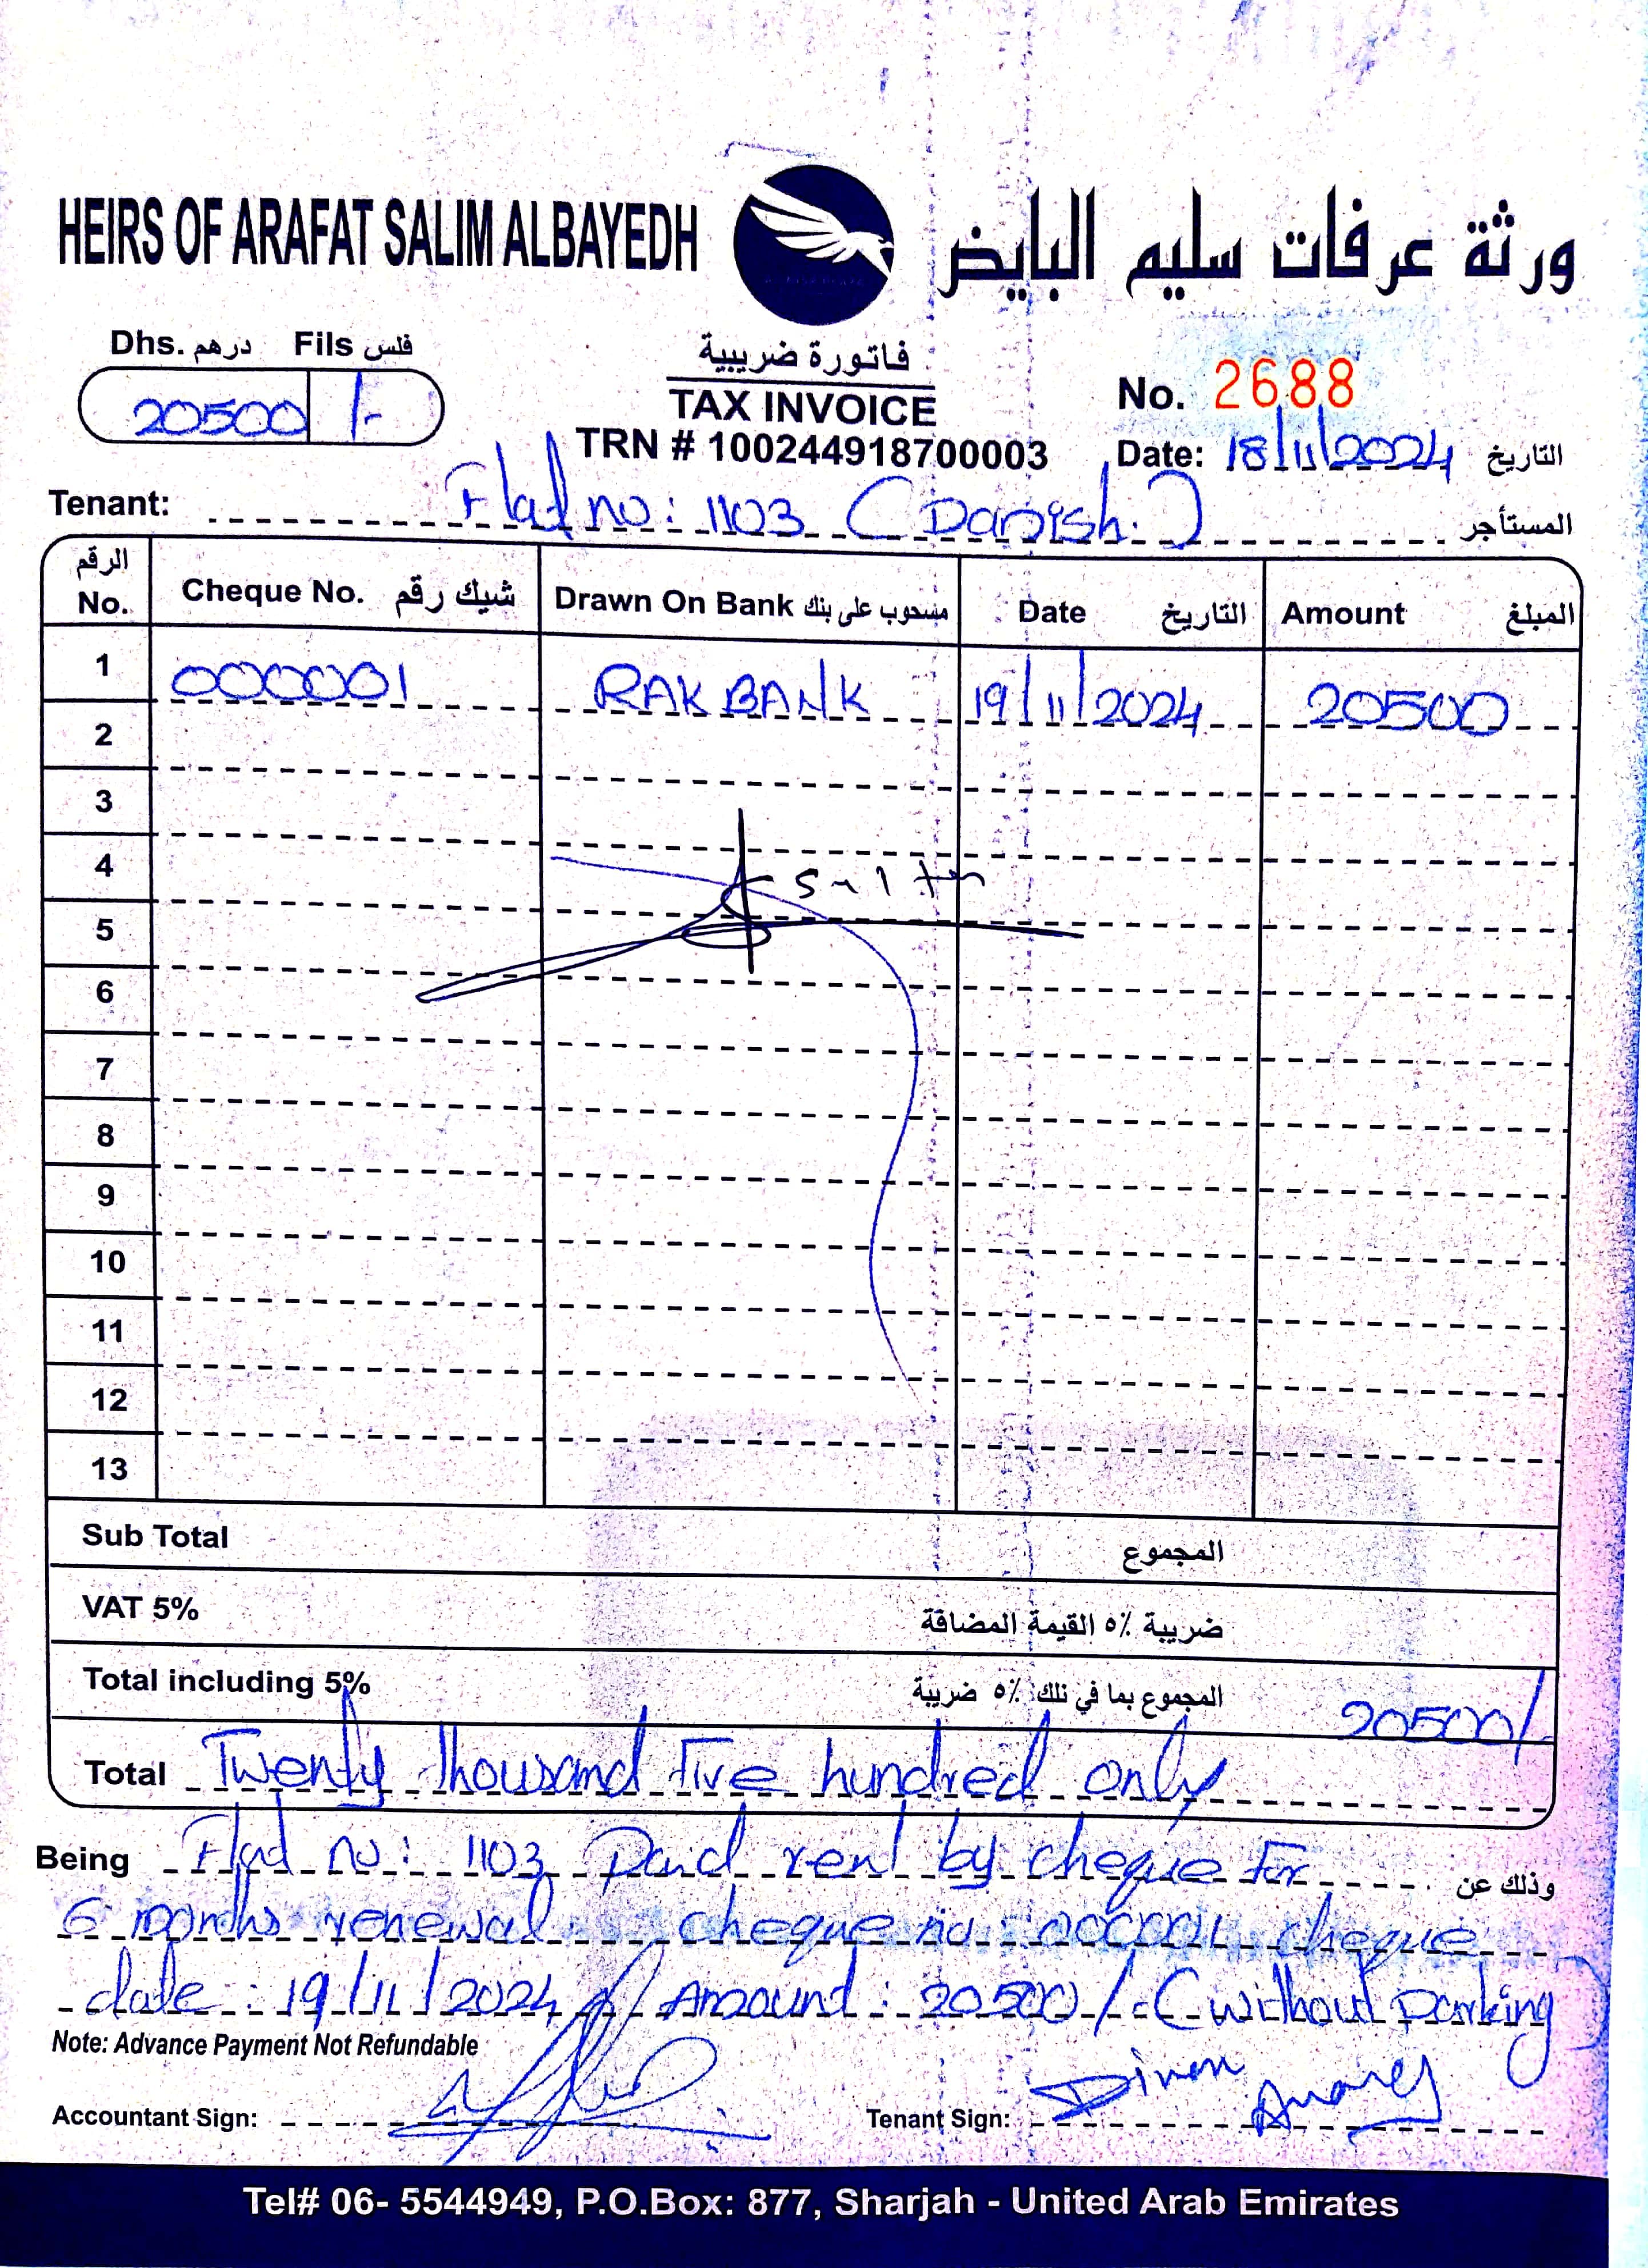 HEIRS OF ARAFAT SALIM ALBAYEDH ورثة عرفات سليم البايض
Dhs. درهم Fils فلس
20500 /-
فاتورة ضريبية
TAX INVOICE
TRN # 100244918700003
No. 2688
Date: 18/11/2024 التاريخ
Tenant: Flat no: 1103 (Danish) المستأجر
الرقم No. Cheque No. شيك رقم Drawn On Bank مسحوب على بنك Date التاريخ Amount المبلغ
1 000001 RAK BANK 19/11/2024 20500
2
3
4
5
6
7
8
9
10
11
12
13
Sub Total المجموع
VAT 5% ضريبة ٥٪ القيمة المضافة
Total including 5% المجموع بما في ذلك ٥٪ ضريبة 20500/-
Total Twenty thousand Five hundred only
Being Flat no: 1103 Paid rent by cheque For وذلك عن
6 months renewal cheque no: 000001 cheque
date: 19/11/2024 / Amount: 20500/- (without Parking)
Note: Advance Payment Not Refundable
Accountant Sign: Tenant Sign:
Tel# 06- 5544949, P.O.Box: 877, Sharjah - United Arab Emirates